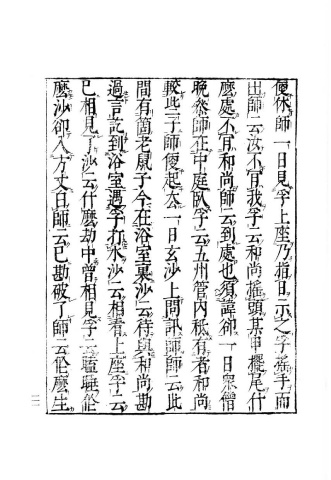 便休師一日見孚上座乃指日示之孚搖手而
出師云汝不肎我孚云和尚搖頭某甲擺尾什
麼處不肎和尚師云到處也須諱卻一日衆僧
晚參師在中庭臥孚云五州管內秖有者和尚
較些子師便起去一日玄沙上問訊師師云此
間有箇老鼠子今在浴室裏沙云待與和尚勘
過言訖到浴室遇孚打水沙云相看上座孚云
已相見了沙云什麼劫中曾相見孚云瞌睡作
麼沙卻入方丈白師云已勘破了師云作麼生